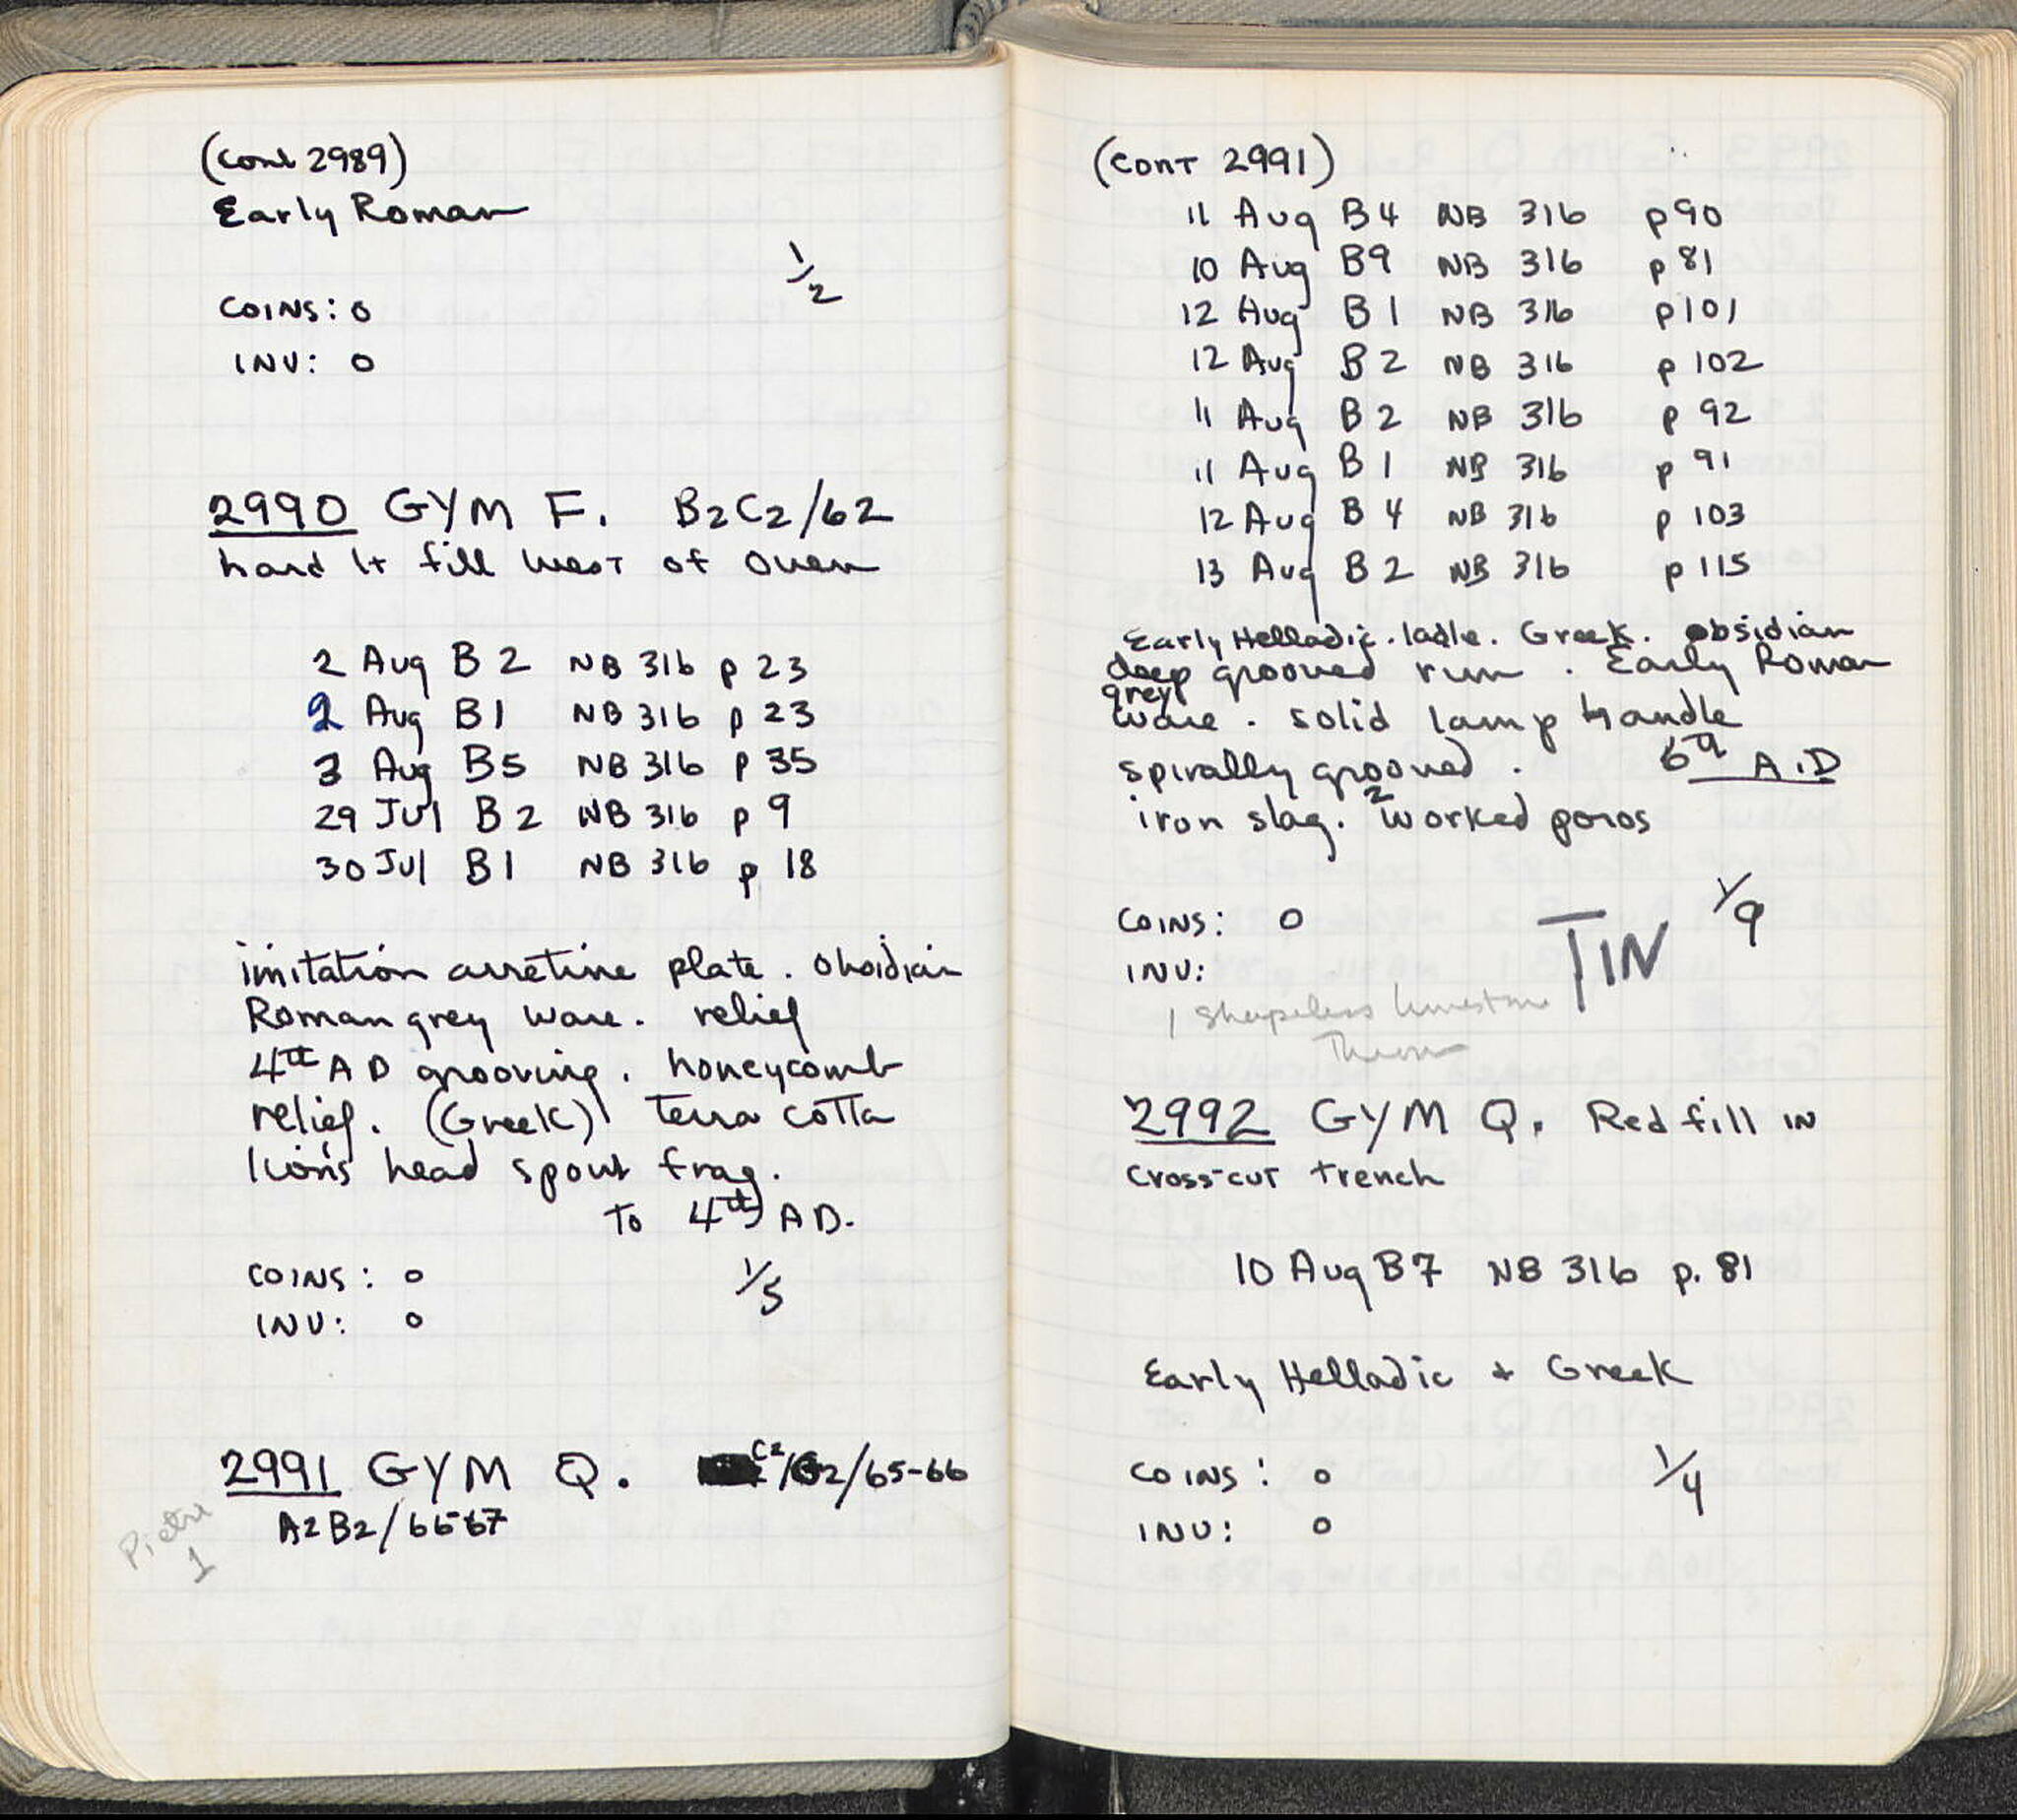 (Cont 2989)
Early Roman
1/2
COINS: 0
INV: 0
2990 GYM F. B2C2/62
hard lt fill west of oven
2 Aug B 2 NB 316 p 23
2 Aug B1 NB 316 p 23
3 Aug B5 NB 316 p 35
29 Jul B 2 NB 316 p 9
30 Jul B1 NB 316 p 18
imitation arretine plate. Obsidian
Roman grey ware. relief
4th AD grooving. honeycomb
relief. (Greek) terra cotta
lion's head spout frag.
To 4th AD.
COINS: 0 1/5
INV: 0
2991 GYM Q. C2/G2/65-66
A2B2/66-67
1
(CONT 2991)
11 Aug B4 NB 316 p90
10 Aug B9 NB 316 p 81
12 Aug B 1 NB 316 p101
12 Aug B 2 NB 316 p 102
11 Aug B 2 NB 316 p 92
11 Aug B 1 NB 316 p 91
12 Aug B 4 NB 316 p 103
13 Aug B 2 NB 316 p 115
Early Helladic. ladle. Greek. obsidian
deep grooved rim. Early Roman
grey
ware. solid lamp handle
spirally grooved. A.D
iron slag. 2 worked poros
COINS: 0 TIN 1/9
INV:
1 shapeless limestone
Thrown
2992 GYM Q. Red fill IN
cross-cut trench
10 Aug B7 NB 316 p. 81
Early Helladic + Greek
COINS: 0 1/4
INV: 0